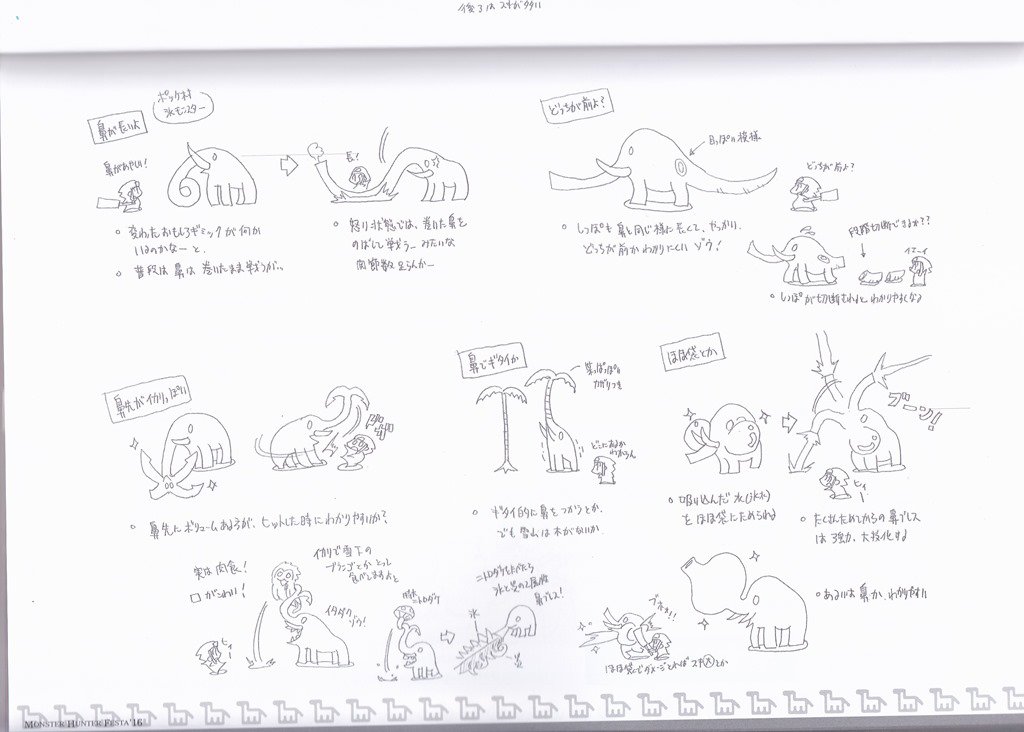 鼻が長いよ
ポッケ村
氷モンスター
鼻があやしい!
長!
。変わったおもしろギミックが何か
いるのかなーと、
。普段は鼻は巻いたまま戦うが、、
。怒り状態では、巻いた鼻を
のばして戦うーみたいな
関節数足らんかー
どっちが前よ?
目っぽい模様
どっちが前よ?
。しっぽも鼻と同じ様に長くて、やっかい、
どっちが前かわかりにくいゾウ!
段階切断できるか??
イエーイ
。しっぽが切断されるとわかりやすくなる
鼻先がイカリっぽい
。鼻先にボリュームあるうが、ヒットした時にわかりやすいか?
鼻でギタイか
葉っぱっぽい
かざりつき
どこにあるか
わからん
。ギタイ的に鼻をつかうとか、
でも雪山は木がないか、
ほほ袋とか
ブーン!
ヒィー
。吸い込んだ水(氷水)
をほほ袋にためられる
。たくさんためてからの鼻ブレス
は強力、大技化する
実は肉食!
がこわい!
イカリで雪下の
ブランゴとかとって
食べてますよと
イタダク
ゾウ!
ヒィ!
ニトロダケ
ニトロダケをたべたら
氷と炎の2属性
鼻ブレス!
氷
炎
ブホォ!!
ほほ袋にダメージとれば
。あるいは鼻か、わかりやすい
MONSTER HUNTER FESTA'16